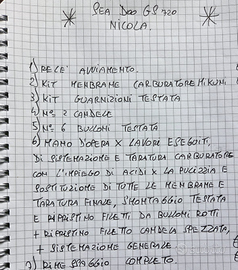 SEA DOO GS 720
NICOLA.
1) RELE' AVVIAMENTO.
2) KIT MEMBRANE CARBURATORE MIKUNI
3) KIT GUARNIZIONI TESTATA
4) N° 2 CANDELE
5) N° 6 BULLONI TESTATA
6) MANO D'OPERA X LAVORI ESEGUITI,
DI SISTEMAZIONE E TARATURA CARBURATORE
CON L'IMPIEGO DI ACIDI X LA PULIZIA E
SOSTITUZIONE DI TUTTE LE MEMBRANE E
TARATURA FINALE, SMONTAGGIO TESTATA
E RIPRISTINO FILETTI DA BULLONI ROTTI
+ RIPRISTINO FILETTO CANDELA SPEZZATA,
+ SISTEMAZIONE GENERALE
7) RIMESSAGGIO COMPLETO